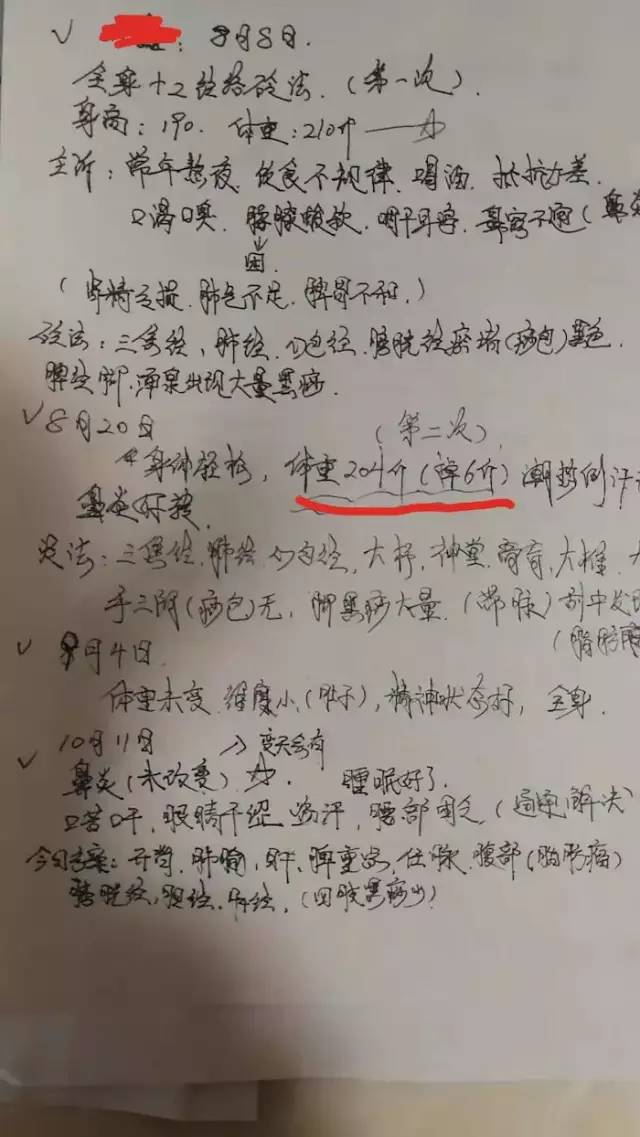 8月8日.
全身十二经络砭法.(第一次).
身高:190. 体重:210斤
主诉:常年熬夜,饮食不规律.喝酒,抵抗力差.
口渴口臭,腰膝酸软,咽干耳鸣,鼻窍不通(鼻炎
困
(肾精亏损.肺气不足.脾胃不和.)
砭法:三焦经,肺经.心包经.膀胱经瘀堵(病包)黑色.
脾经脚.涌泉出现大量黑痧
8月20日 (第二次).
身体轻松,体重204斤(降6斤)潮热倒汗
鼻炎好转.
砭法:三焦经.肺经.心包经,大杼,神堂,膏肓,大椎.
手三阴(病包)无,脚黑痧大量.(带脉)刮中发现
(脂肪
9月4日.
体重未变.维度小.(肚子),精神状态好,全身.
10月11日 变天会有
鼻炎(未改变) 睡眠好了.
口苦口干,眼睛干涩 汗,腰部困乏(通通解决)
今日方案:开背.肺俞,肝,脾重点,任脉,腹部(脂肪瘤)
膀胱经,胆经,肝经,(四肢黑痧少)